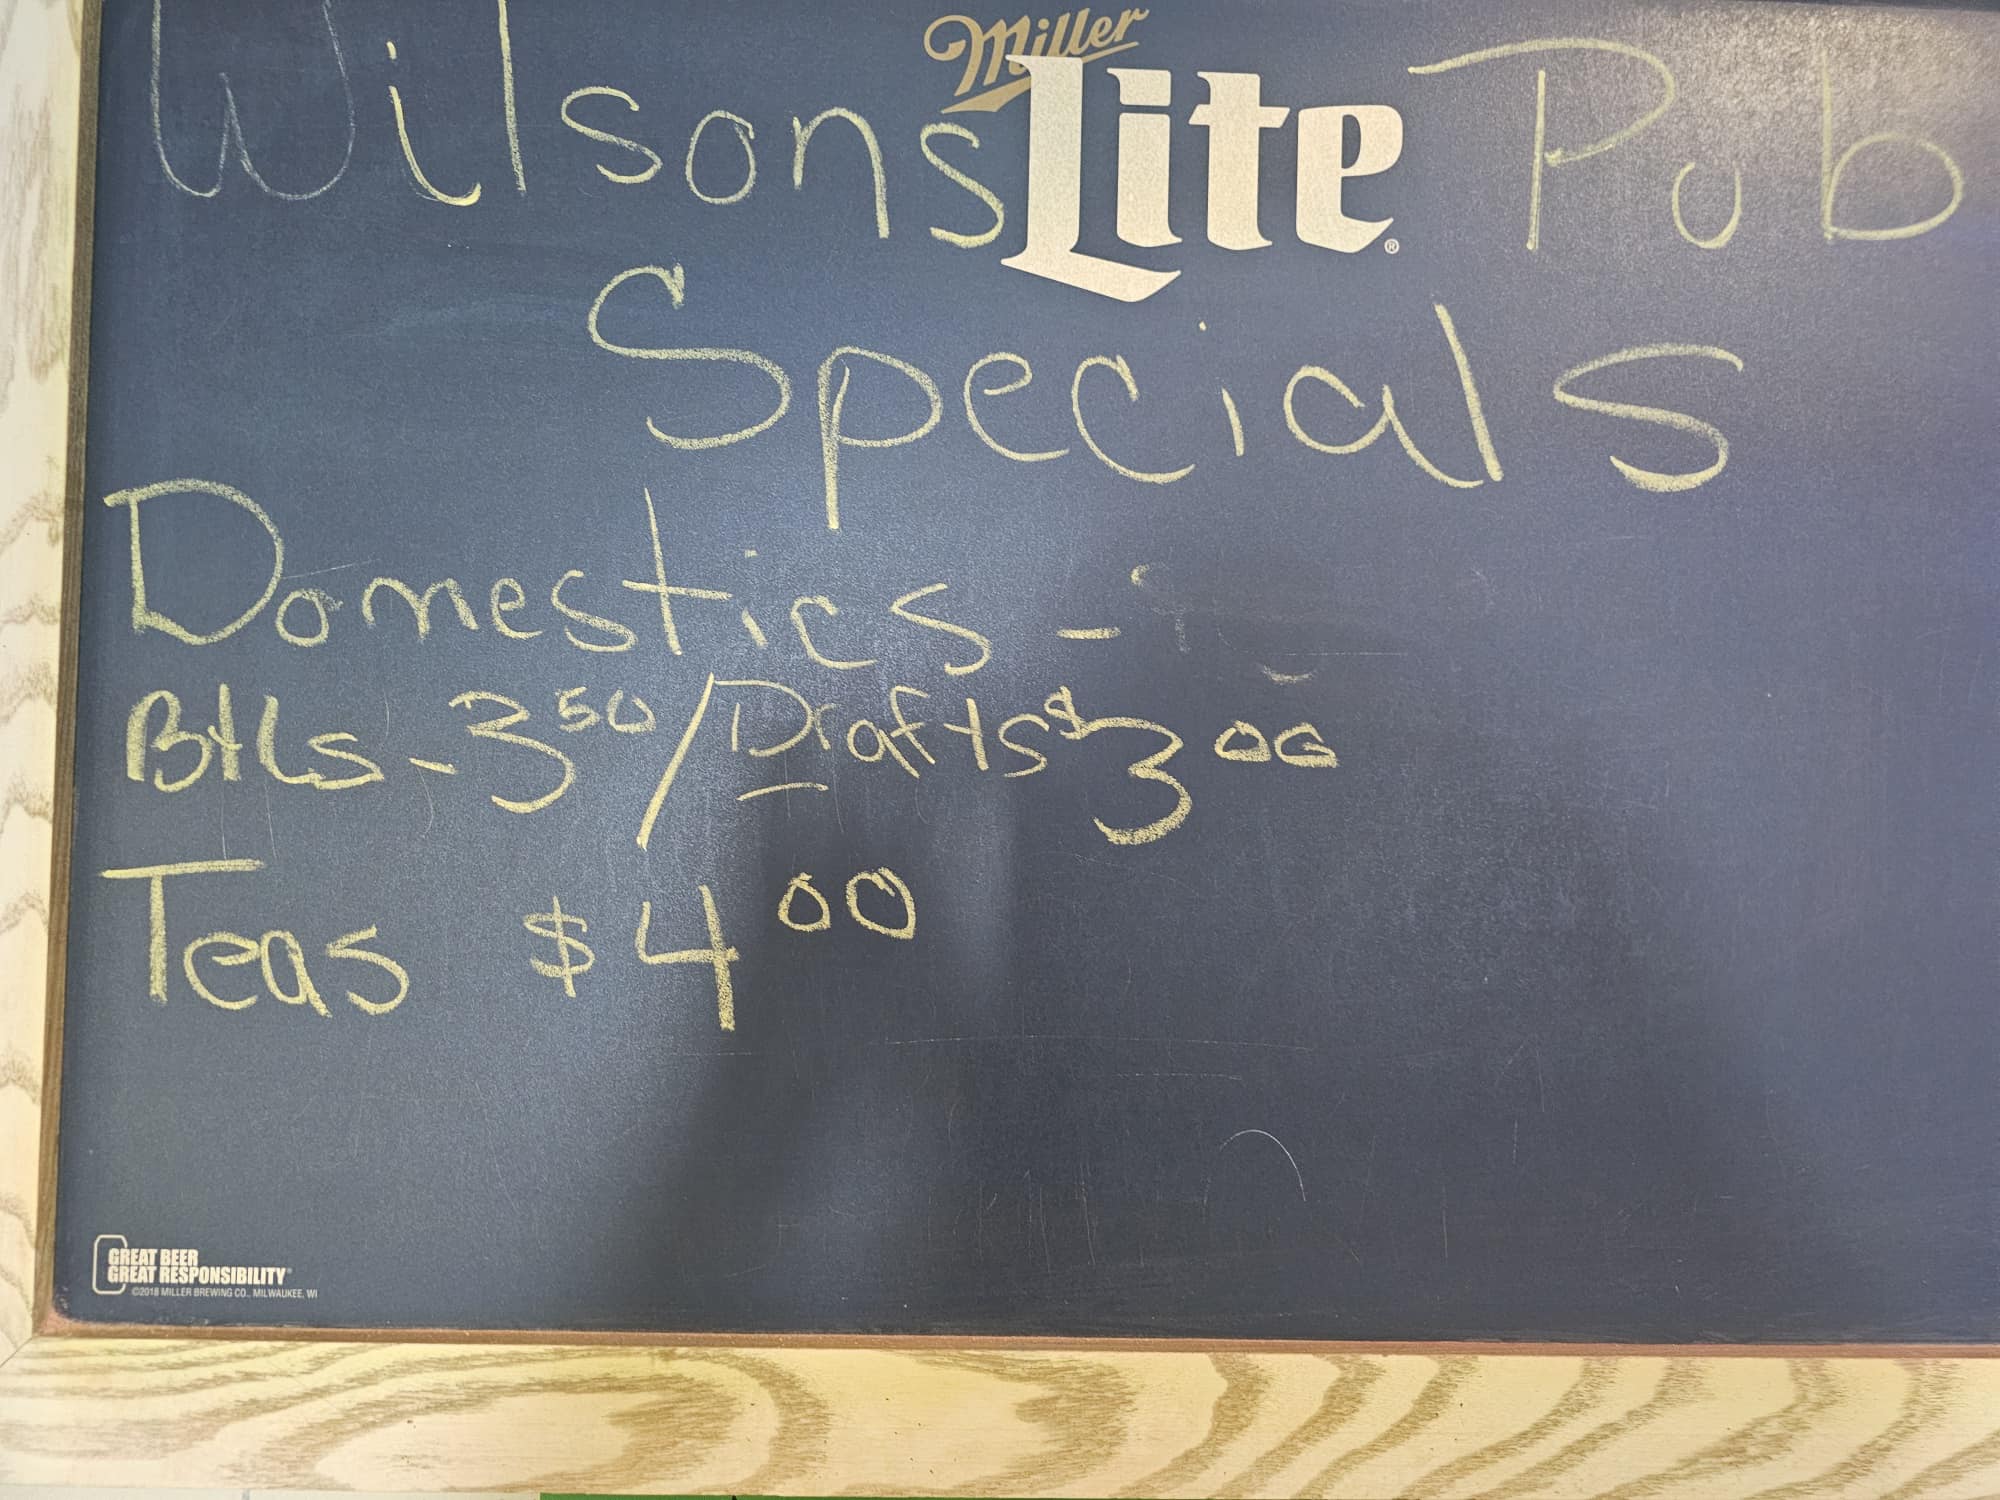 Miller
Wilsons Lite Pub
Specials
Domestics -
Btls - 3⁵⁰ / Drafts $3⁰⁰
Teas $4⁰⁰
GREAT BEER
GREAT RESPONSIBILITY®
©2018 MILLER BREWING CO., MILWAUKEE, WI